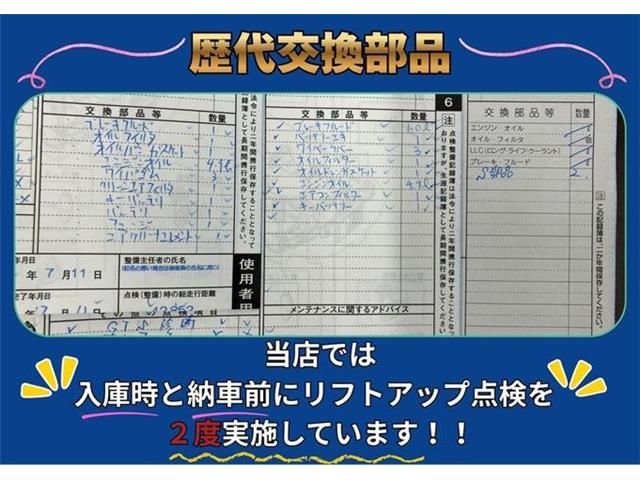 歴代交換部品
交換部品等 数量
ブレーキフルード 1
オイルフィルタ 1
オイルパンガスケット 1
エンジンオイル 4.9L
ワイパーゴム
クリーンエアフィルタ 1
キーバッテリ 1
バッテリ 1
エアクリーナエレメント 1
法令により二年間携行保存することとなって
して長期間携行保存してください。
年月日
7月11日
整備主任者の氏名
点検(整備)時の総走行距離
完了年月日
使用者用
交換部品等 数量
ブレーキフルード 1.0L
ワイパーラバー
オイルフィルター 1
オイルドレンガスケット 1
エンジンオイル 4.9L
エアコンフィルター 1
キーバッテリー 1
メンテナンスに関するアドバイス
6
注
点検整備記録簿は法令により二年間携行保存することとなって
おりますが、生涯記録簿として長期間携行保存してください。
交換部品等 数量
エンジン・オイル
オイル・フィルタ
LLC(ロング・ライフ・クーラント)
ブレーキ・フルード
2
注
この記録簿は、二か年間保存してください。
当店では
入庫時と納車前にリフトアップ点検を
2度実施しています!!